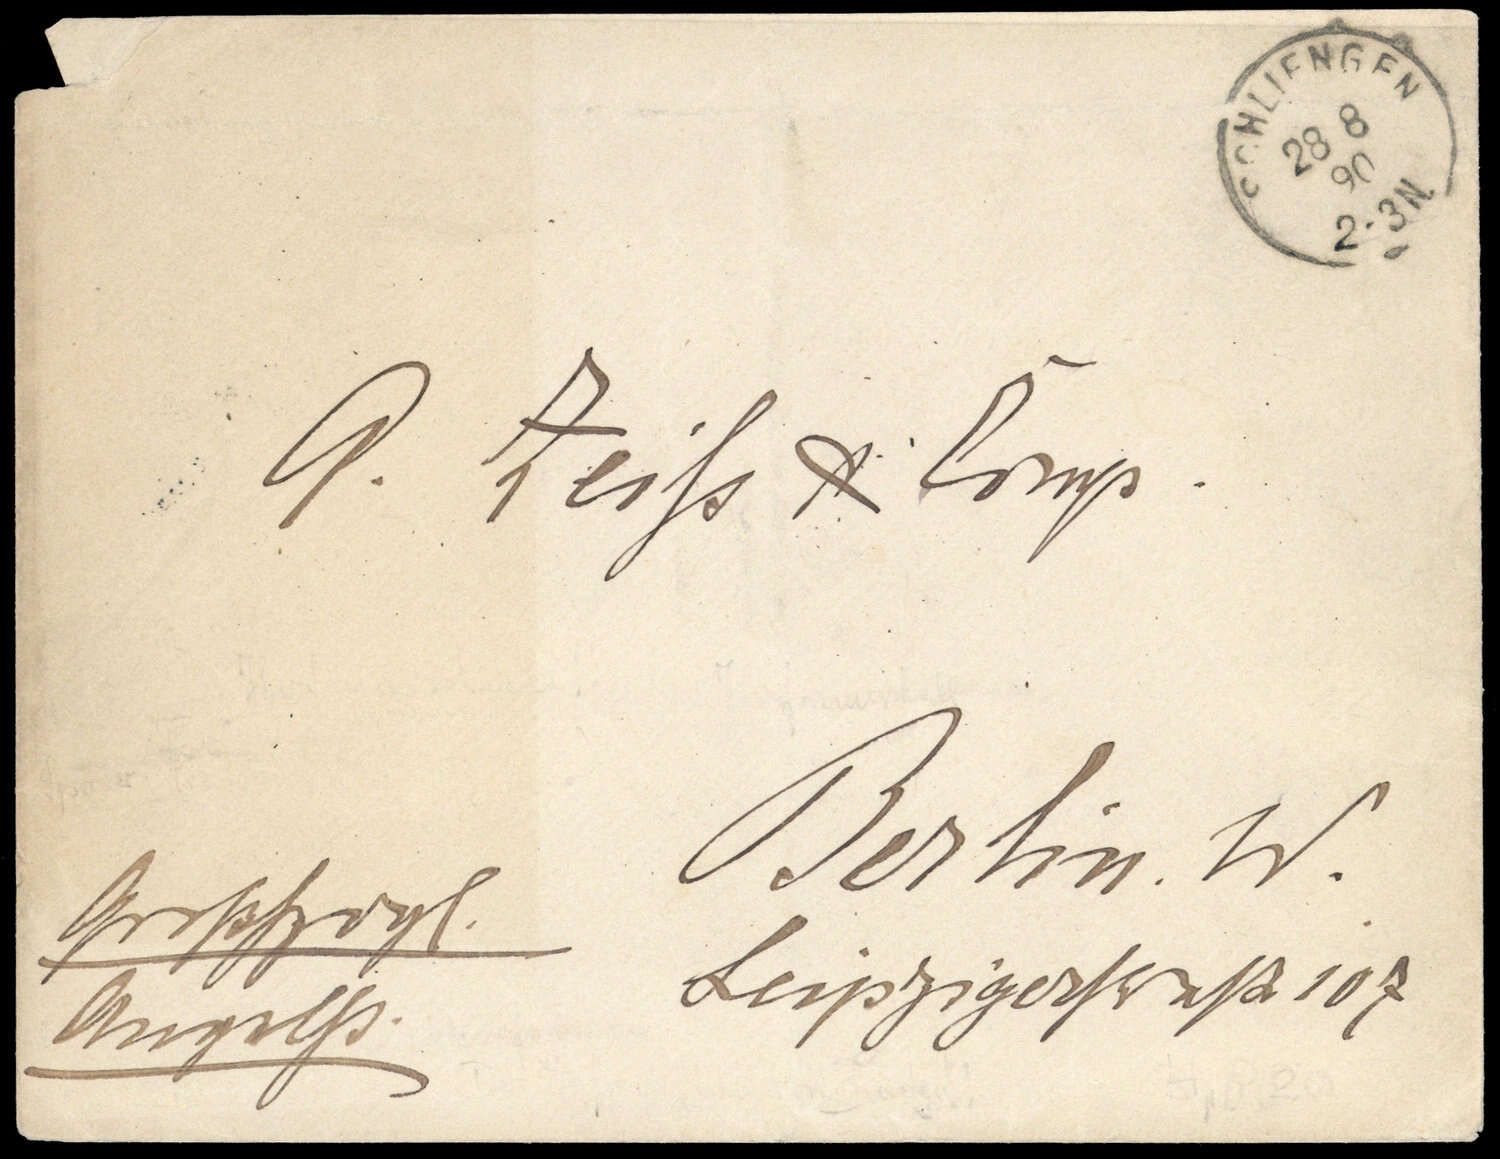 SCHLIENGEN
28 8
90
2-3N
P. Zeiss & Comp.
Berlin. W.
Leipzigerstraße 107
Großherzogl.
Angelh.